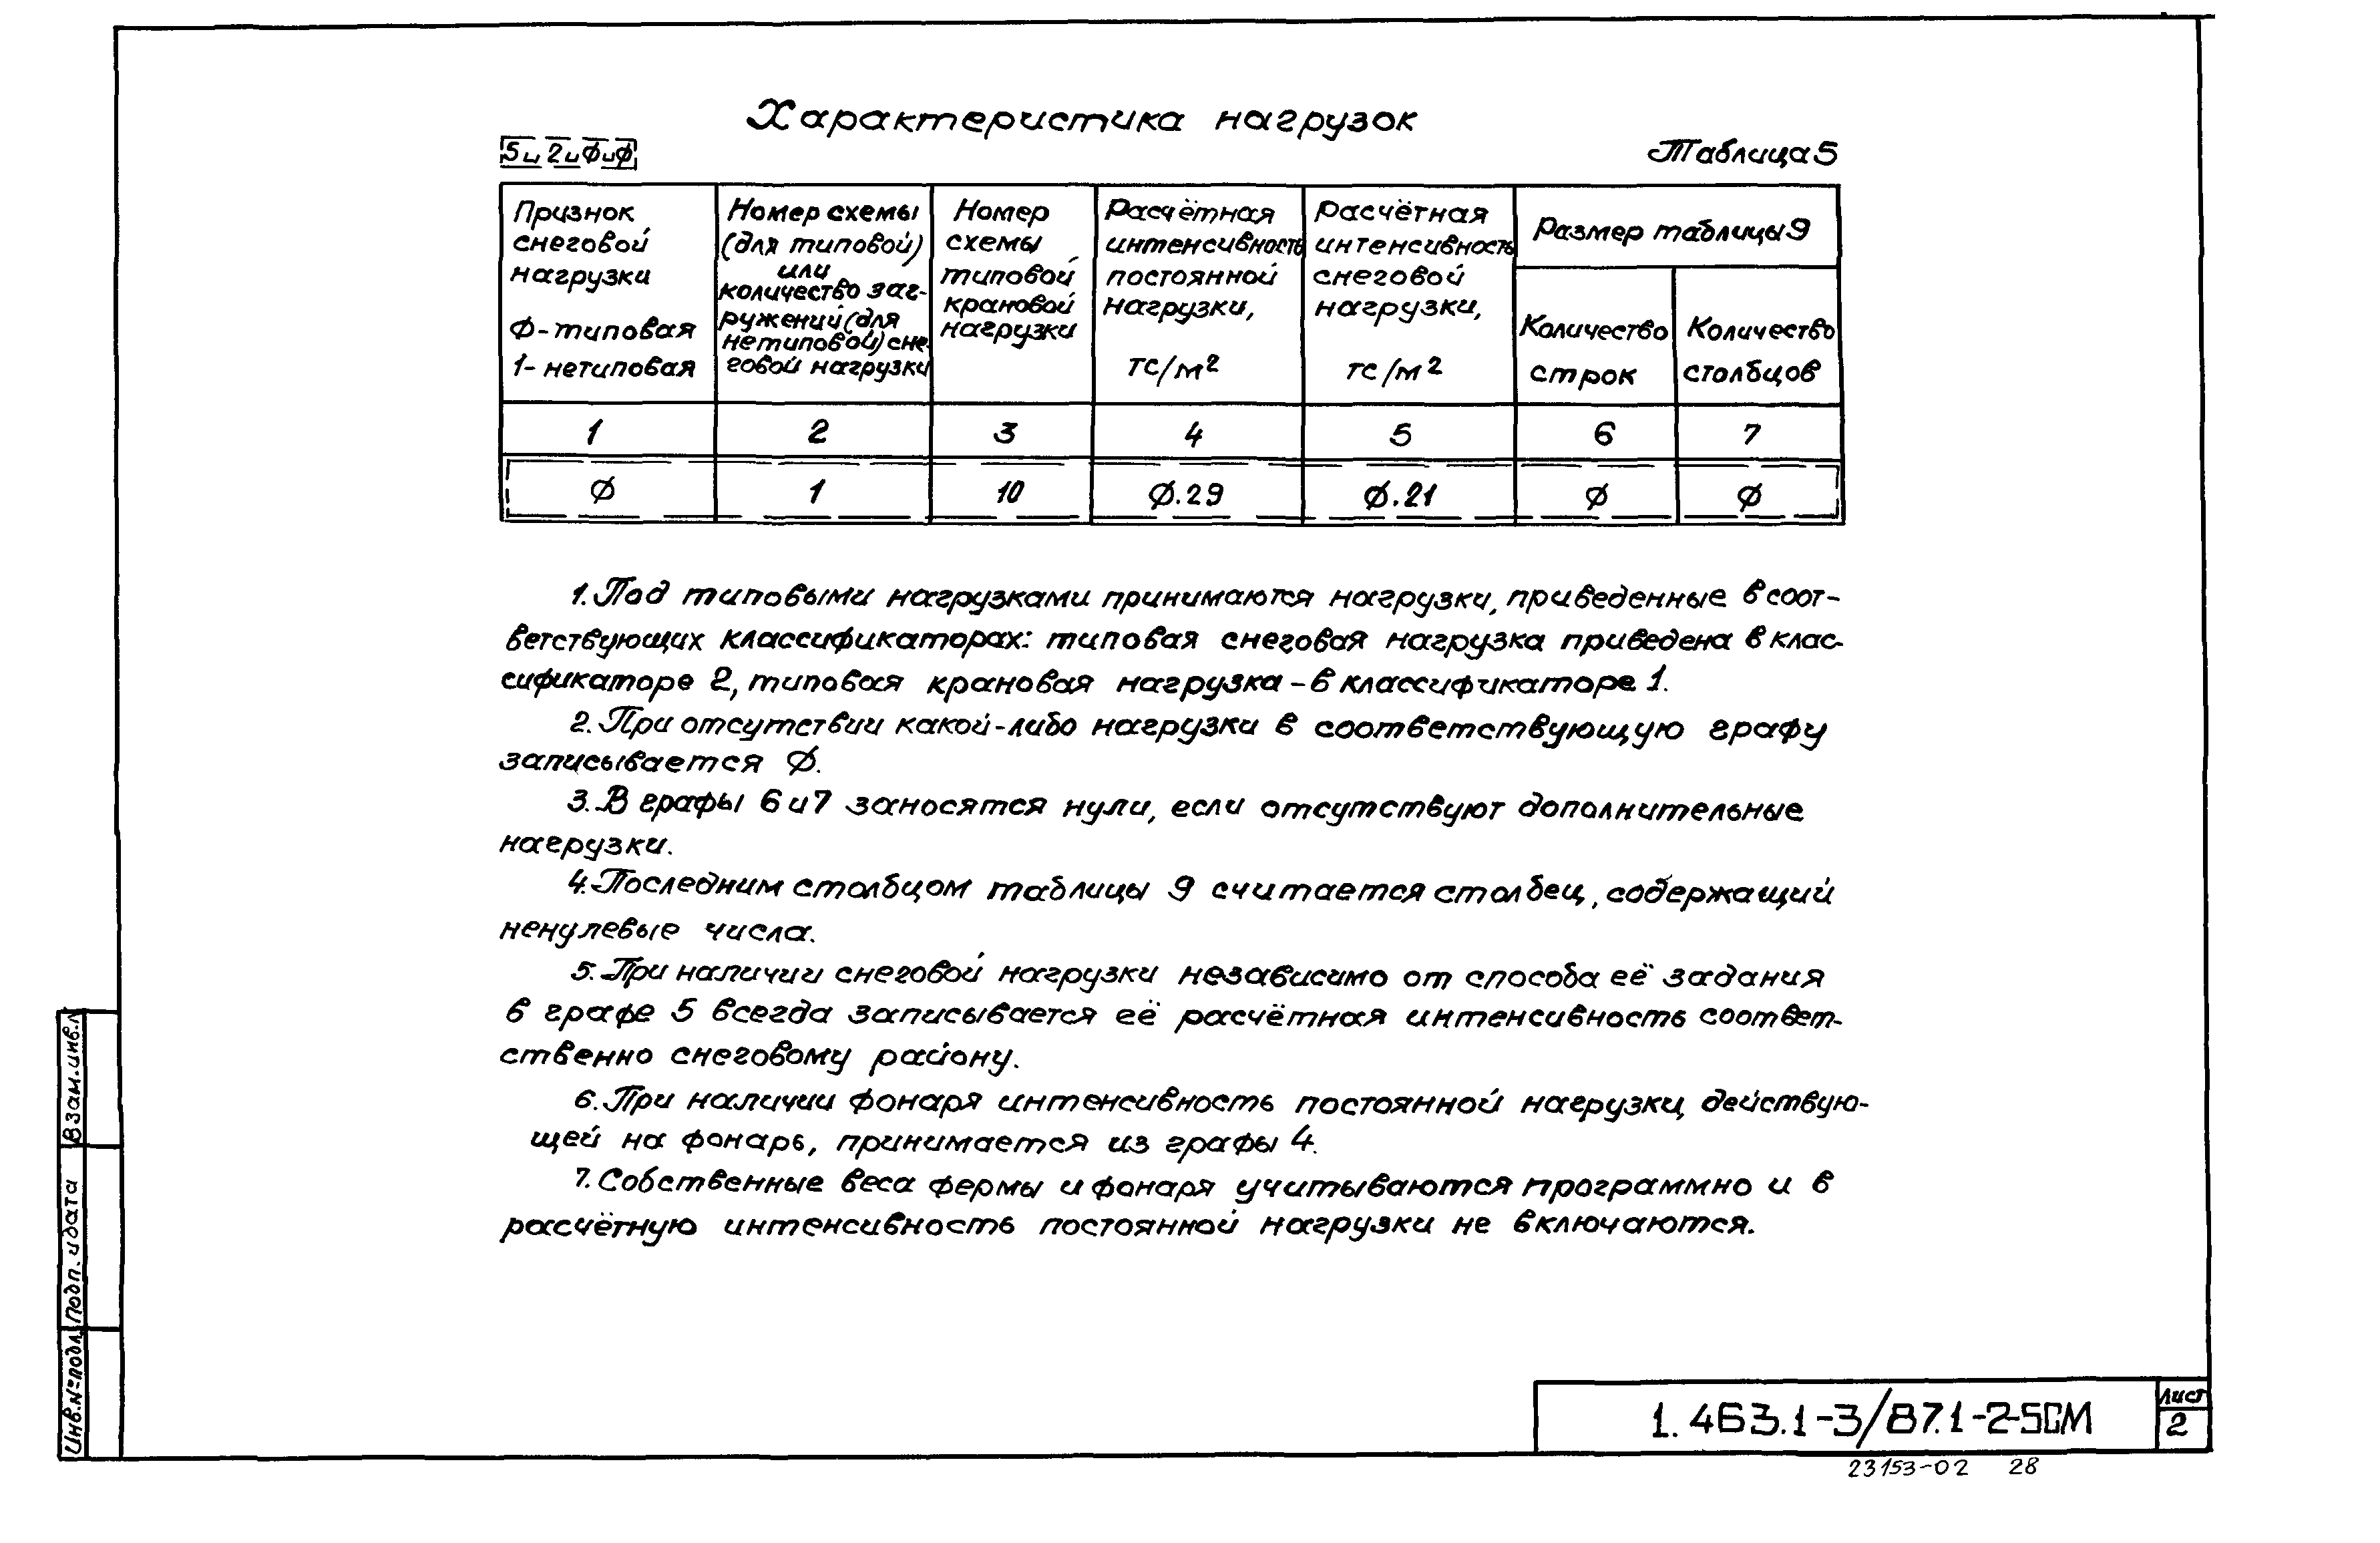 Характеристика нагрузок
5⊔2⊔Ф⊔Ф
Таблица 5
Признок
снеговой
нагрузки
Ф-типовая
1-нетиповая
Номер схемы
(для типовой)
или
количество заг-
ружений (для
нетиповой) сне-
говой нагрузки
Номер
схемы
типовой
крановой
нагрузки
Расчётная
интенсивность
постоянной
нагрузки,
тс/м²
Расчётная
интенсивность
снеговой
нагрузки,
тс/м²
Размер таблицы 9
Количество
строк
Количество
столбцов
1 2 3 4 5 6 7
Ф 1 10 Ф.29 Ф.21 Ф Ф
1. Под типовыми нагрузками принимаются нагрузки, приведенные в соот-
ветствующих классификаторах: типовая снеговая нагрузка приведена в клас-
сификаторе 2, типовая крановая нагрузка - в классификаторе 1.
2. При отсутствии какой-либо нагрузки в соответствующую графу
записывается Ф.
3. В графы 6 и 7 заносятся нули, если отсутствуют дополнительные
нагрузки.
4. Последним столбцом таблицы 9 считается столбец, содержащий
ненулевые числа.
5. При наличии снеговой нагрузки независимо от способа её задания
в графе 5 всегда записывается её расчётная интенсивность соответ-
ственно снеговому району.
6. При наличии фонаря интенсивность постоянной нагрузки, действую-
щей на фонарь, принимается из графы 4.
7. Собственные веса фермы и фонаря учитываются программно и в
расчётную интенсивность постоянной нагрузки не включаются.
Взам.инв.№
Подп. и дата
Инв.№ подл.
1.463.1-3/87.1-2-5СМ
Лист
2
23153-02 28